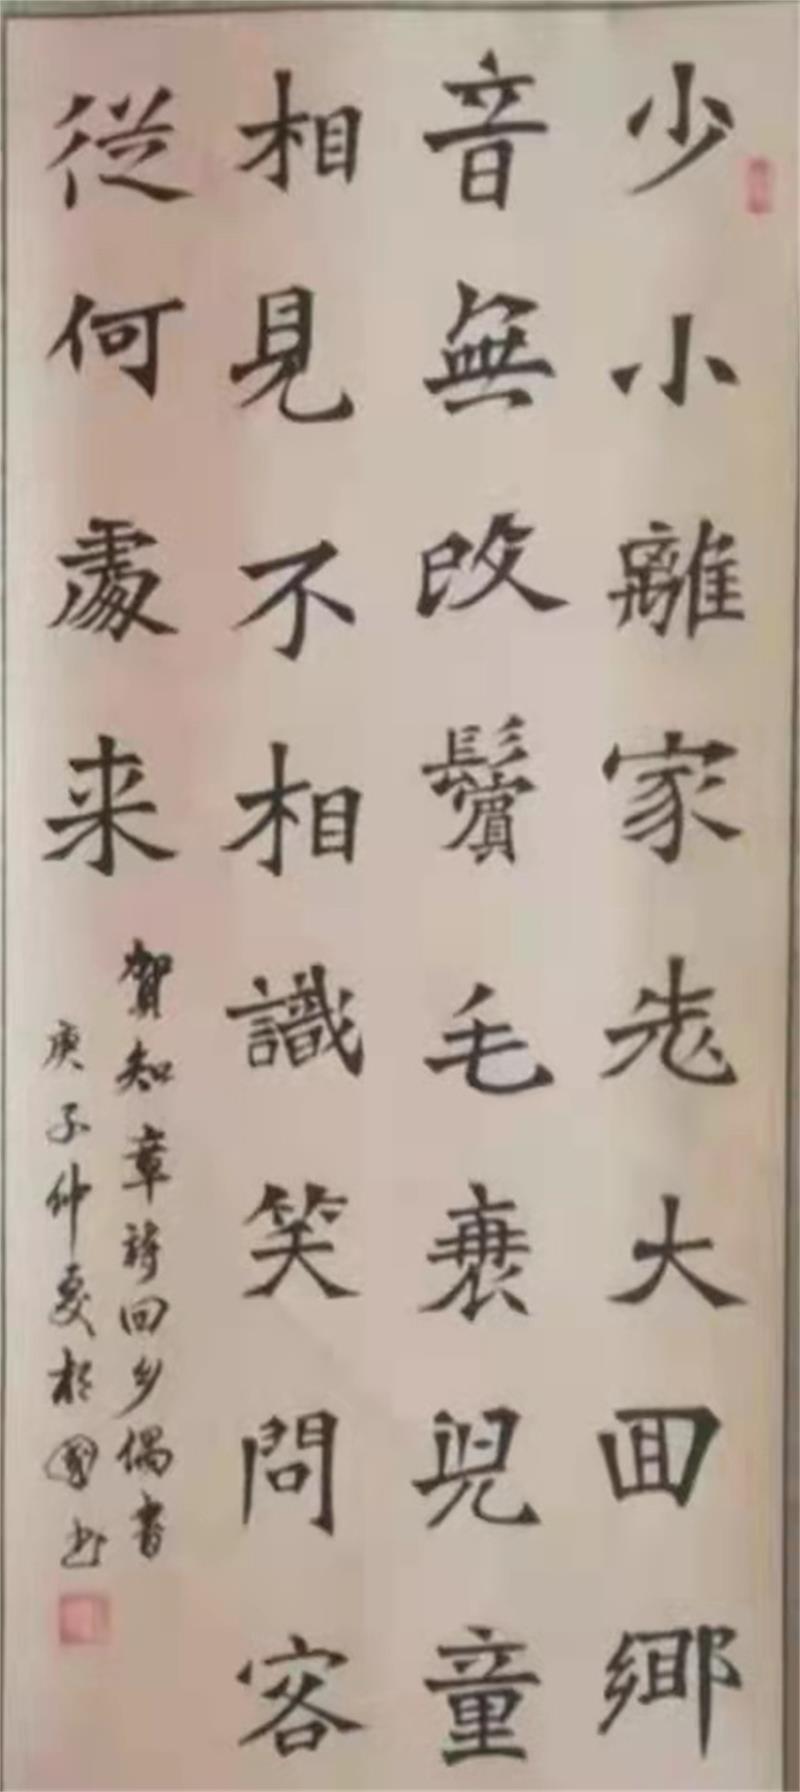 少小離家老大囬鄉
音無改鬢毛衰兒童
相見不相識笑問客
從何處来
賀知章詩回乡偶書
庚子仲夏松國书